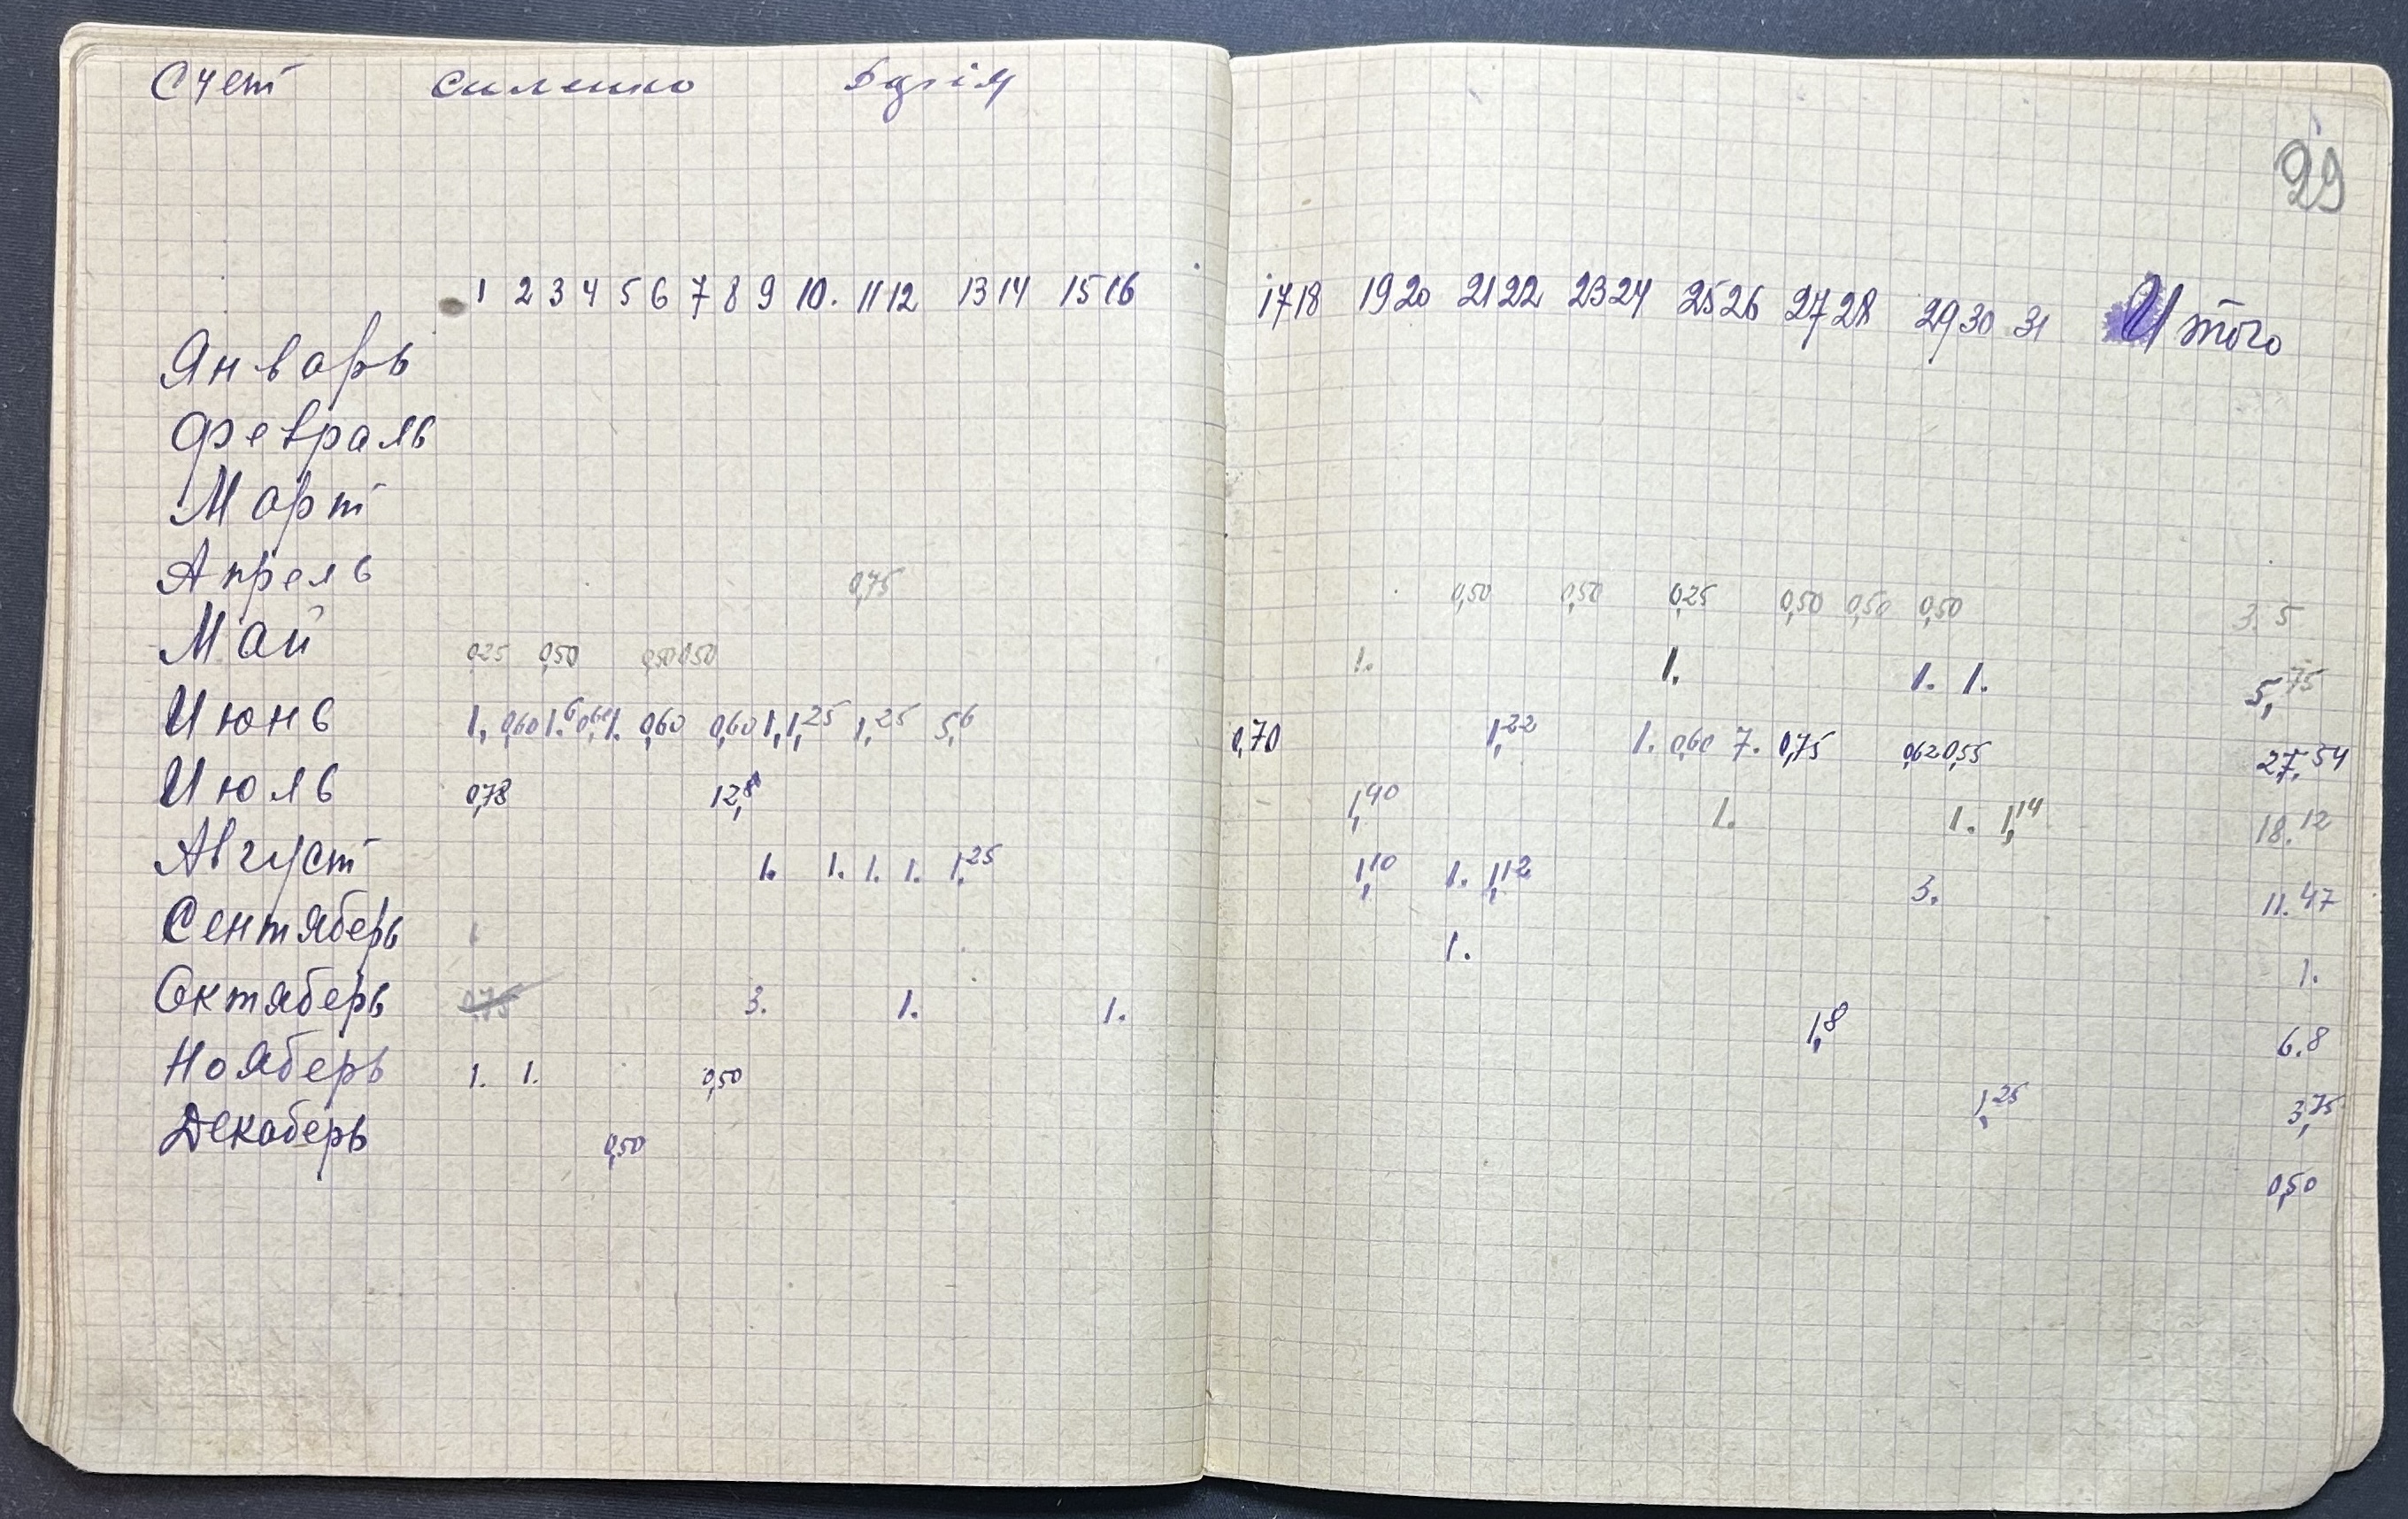 Счет Силенко
29
1 2 3 4 5 6 7 8 9 10. 11 12 13 14 15 16 17 18 19 20 21 22 23 24 25 26 27 28 29 30 31 Итого
Январь
Февраль
Март
Апрель 0,75 0,50 0,50 0,25 0,50 0,50 0,50 3.5
Май 0,25 0,50 0,50 0,50 1. 1. 1. 1. 5,75
Июнь 1. 0,60 1.6 0,60 1. 0,60 0,60 1, 1,25 1,25 5,6 0,70 1,22 1. 0,60 7. 0,75 0,62 0,55 27.54
Июль 0,78 12,8 1,40 1. 1. 1,14 18.12
Август 1. 1. 1. 1. 1,25 1,10 1. 1,12 3. 11.47
Сентяберь 1. 1.
Октяберь 0,75 3. 1. 1. 1,8 6.8
Нояберь 1. 1. 0,50 1,25 3,75
Декаберь 0,50 0,50